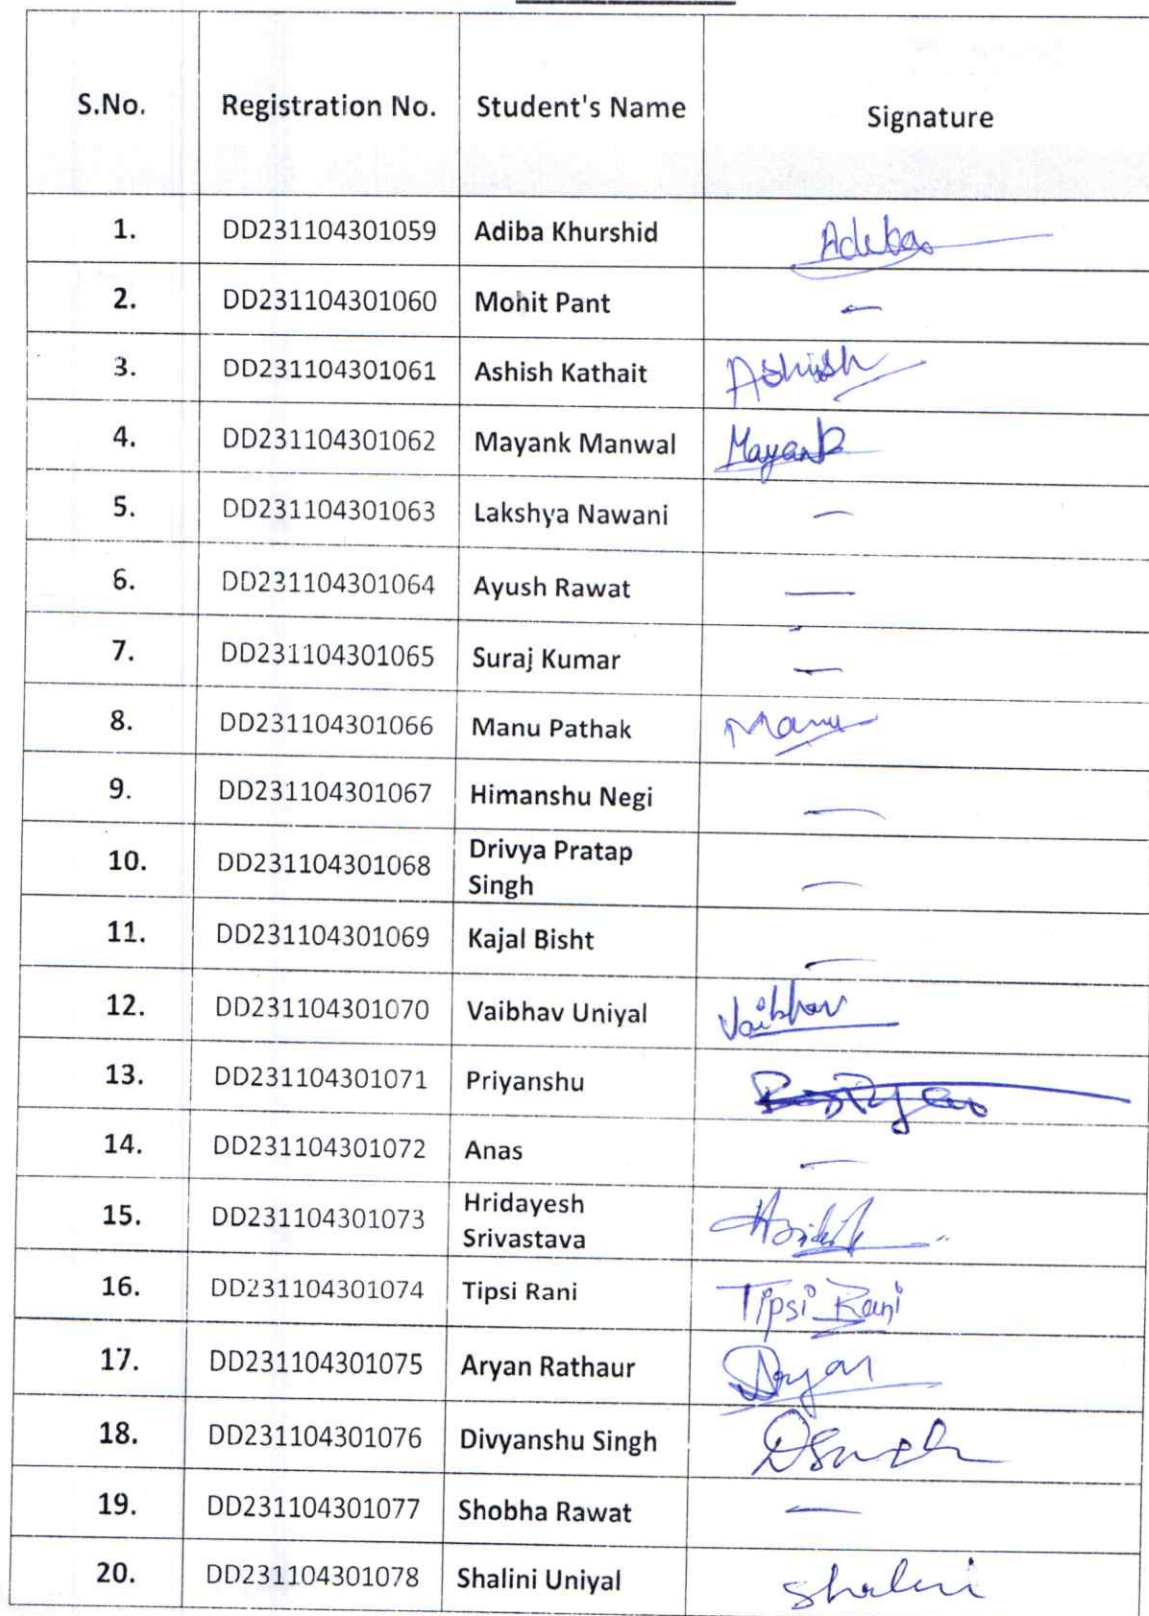 S.No. Registration No. Student's Name Signature
1. DD231104301059 Adiba Khurshid Adiba
2. DD231104301060 Mohit Pant —
3. DD231104301061 Ashish Kathait Ashish
4. DD231104301062 Mayank Manwal Mayank
5. DD231104301063 Lakshya Nawani —
6. DD231104301064 Ayush Rawat —
7. DD231104301065 Suraj Kumar —
8. DD231104301066 Manu Pathak Manu
9. DD231104301067 Himanshu Negi —
10. DD231104301068 Drivya Pratap
Singh —
11. DD231104301069 Kajal Bisht —
12. DD231104301070 Vaibhav Uniyal Vaibhav
13. DD231104301071 Priyanshu
14. DD231104301072 Anas —
15. DD231104301073 Hridayesh
Srivastava
16. DD231104301074 Tipsi Rani Tipsi Rani
17. DD231104301075 Aryan Rathaur Aryan
18. DD231104301076 Divyanshu Singh DSingh
19. DD231104301077 Shobha Rawat —
20. DD231104301078 Shalini Uniyal Shalini